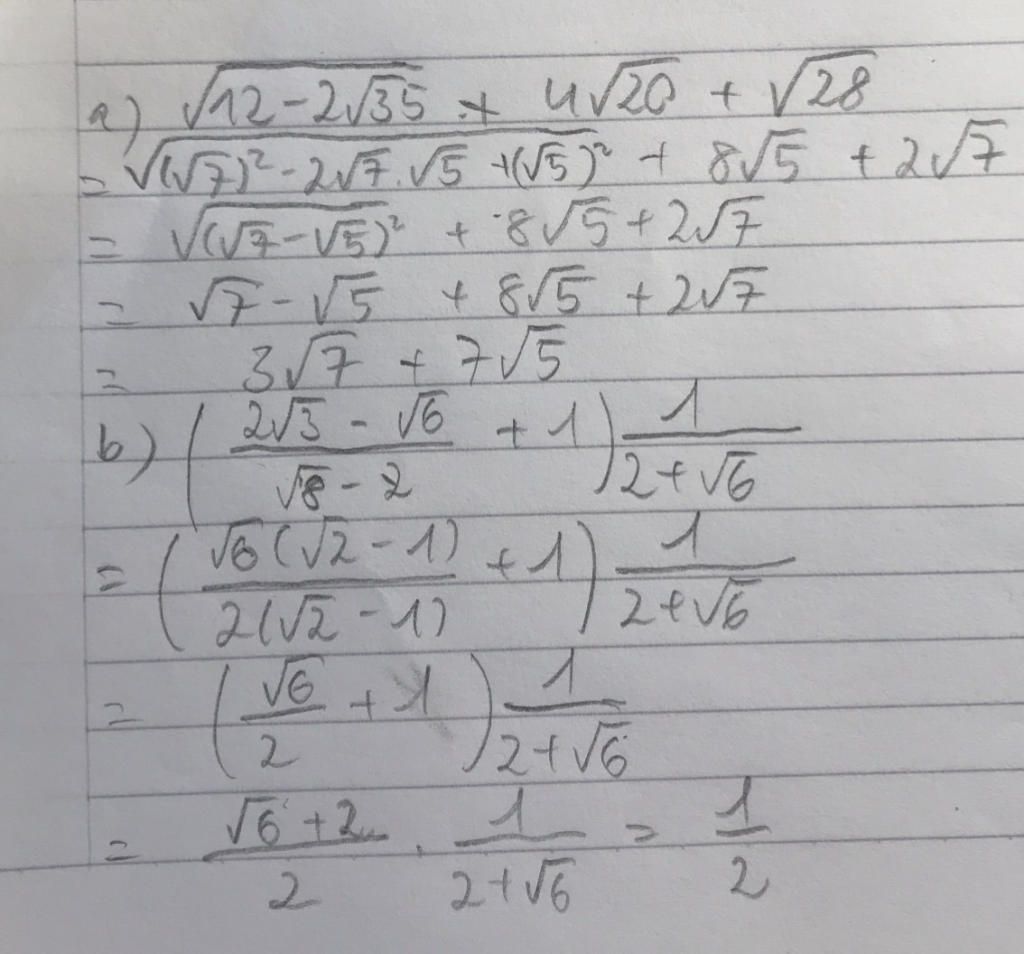 a) √(12-2√35) + 4√20 + √28
= √((√7)² - 2√7.√5 + (√5)²) + 8√5 + 2√7
= √((√7-√5)²) + 8√5 + 2√7
= √7 - √5 + 8√5 + 2√7
= 3√7 + 7√5
b) ((2√3 - √6)/(√8 - 2) + 1) 1/(2+√6)
= (√6(√2 - 1)/2(√2 - 1) + 1) 1/(2+√6)
= (√6/2 + 1) 1/(2+√6)
= (√6+2)/2 . 1/(2+√6) = 1/2